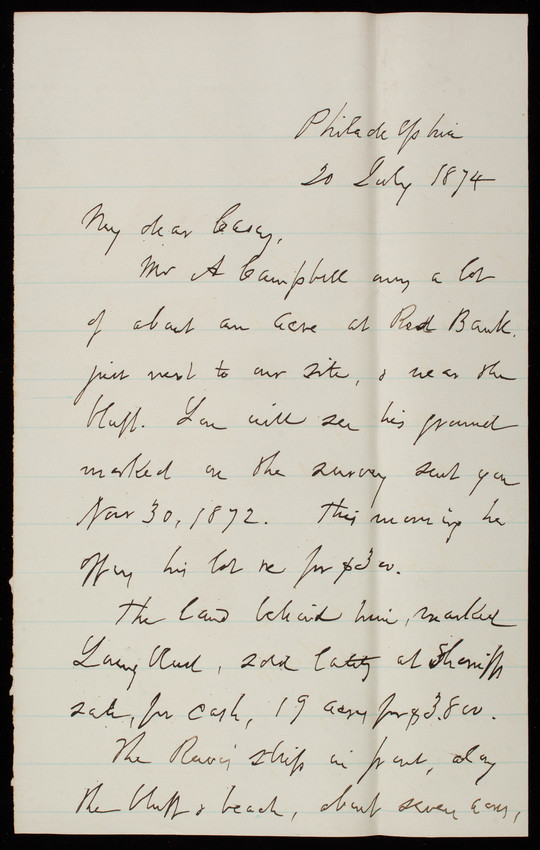 Philadelphia
20 July 1874
My dear Casey,
Mr A Campbell owns a lot
of about an acre at Red Bank.
just next to our site, & near the
bluff. You will see his ground
marked on the survey sent you
Nov 30, 1872. This morning he
offers his lot to me for $300.
The land behind him, marked
sold lately at Sheriffs
sale, for cash, 19 acres for $3.800.
The strip in front, along
the bluff & beach, about seven acres,